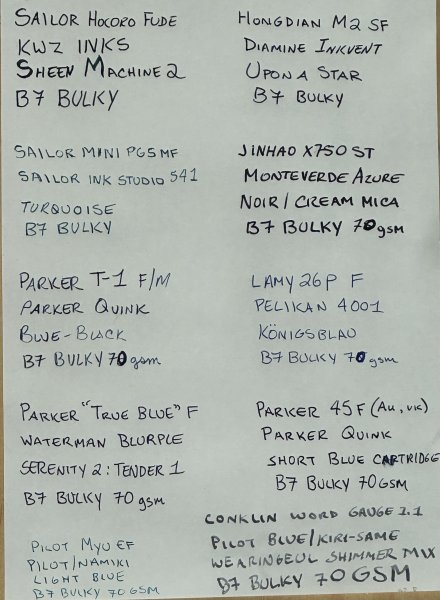 SAILOR HOCORO FUDE
KWZ INKS
SHEEN MACHINE 2
B7 BULKY
HONGDIAN M2 SF
DIAMINE INKVENT
UPON A STAR
B7 BULKY
SAILOR MINI PGS MF
SAILOR INK STUDIO 541
TURQUOISE
B7 BULKY
JINHAO X750 ST
MONTEVERDE AZURE
NOIR / CREAM MICA
B7 BULKY 70 gsm
PARKER T-1 F/M
PARKER QUINK
BLUE-BLACK
B7 BULKY 70 gsm
LAMY 26P F
PELIKAN 4001
KÖNIGSBLAU
B7 BULKY 70 gsm
PARKER "TRUE BLUE" F
WATERMAN BLURPLE
SERENITY 2: TENDER 1
B7 BULKY 70 gsm
PARKER 45 F (AU, VK)
PARKER QUINK
SHORT BLUE CARTRIDGE
B7 BULKY 70 GSM
PILOT MYU EF
PILOT/NAMIKI
LIGHT BLUE
B7 BULKY 70 GSM
CONKLIN WORD GAUGE 1.1
PILOT BLUE/KIRI-SAME
WEARINGEUL SHIMMER MIX
B7 BULKY 70 GSM